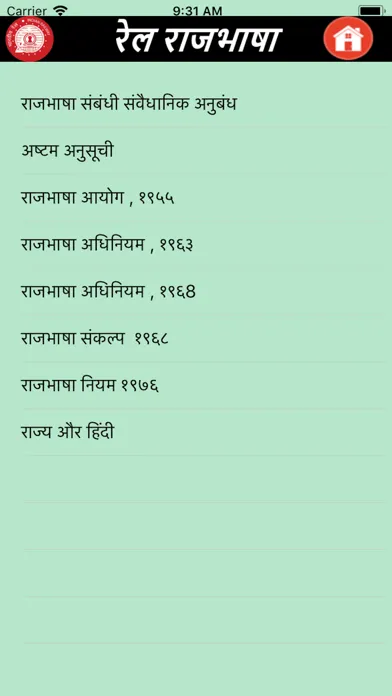 Carrier 9:31 AM
रेल राजभाषा
राजभाषा संबंधी संवैधानिक अनुबंध
अष्टम अनुसूची
राजभाषा आयोग , १९५५
राजभाषा अधिनियम , १९६३
राजभाषा अधिनियम , १९६8
राजभाषा संकल्प १९६८
राजभाषा नियम १९७६
राज्य और हिंदी